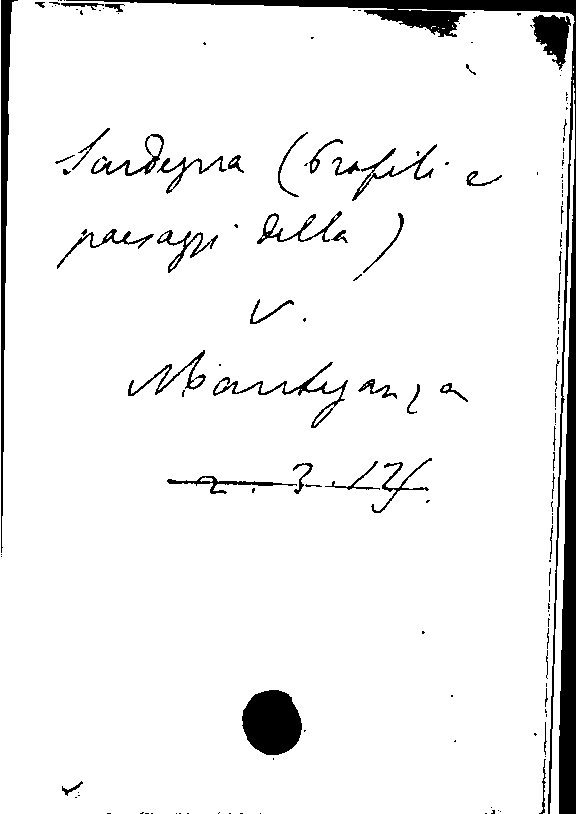 Sardegna (Profili e
paesaggi della)
V.
Mantegazza
2. 3. 12